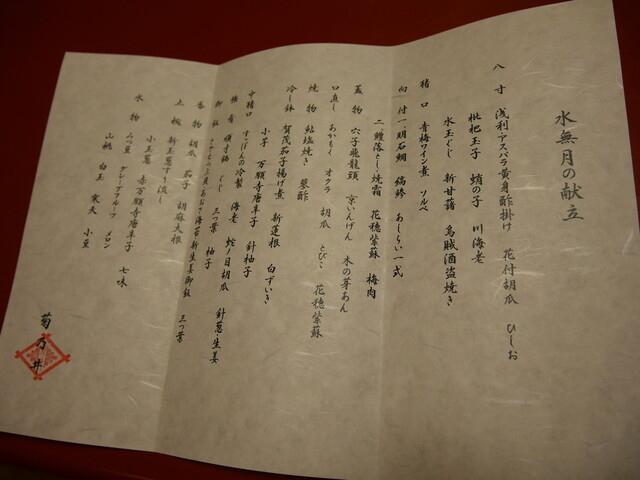 水無月の献立
八寸 浅利アスパラ黄身酢掛け 花付胡瓜 ひしお
枇杷玉子 蛸の子 川海老
水玉ぐじ 新甘藷 烏賊酒盗焼き
猪口 青梅ワイン煮 ソルベ
向付 一 明石鯛 縞鯵 あしらい一式
二 鱧落とし焼霜 花穂紫蘇 梅肉
蓋物 穴子飛龍頭 京いんげん 木の芽あん
口直し あかもく オクラ 胡瓜 とびこ 花穂紫蘇
焼物 鮎塩焼き 蓼酢
冷し鉢 賀茂茄子揚げ煮 新蓮根 白ずいき
小芋 万願寺唐辛子 針柚子
中猪口 すっぽんの冷製 海老 蛇ノ目胡瓜 針葱・生姜
強肴 ぐじ 三つ葉 柚子
御飯 新生姜御飯 三つ葉
香物 胡瓜 茄子 胡麻大根
止椀 新玉葱すり流し
小玉葱 赤万願寺唐辛子 七味
水物 みつ豆 グレープフルーツ メロン
山桃 白玉 寒天 小豆
菊乃井